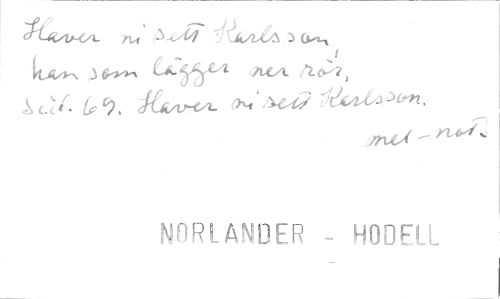 Haver ni sett Karlsson,
han som lägger ner rör,
sid. 69. Haver ni sett Karlsson.
mel-not.
NORLANDER - HODELL